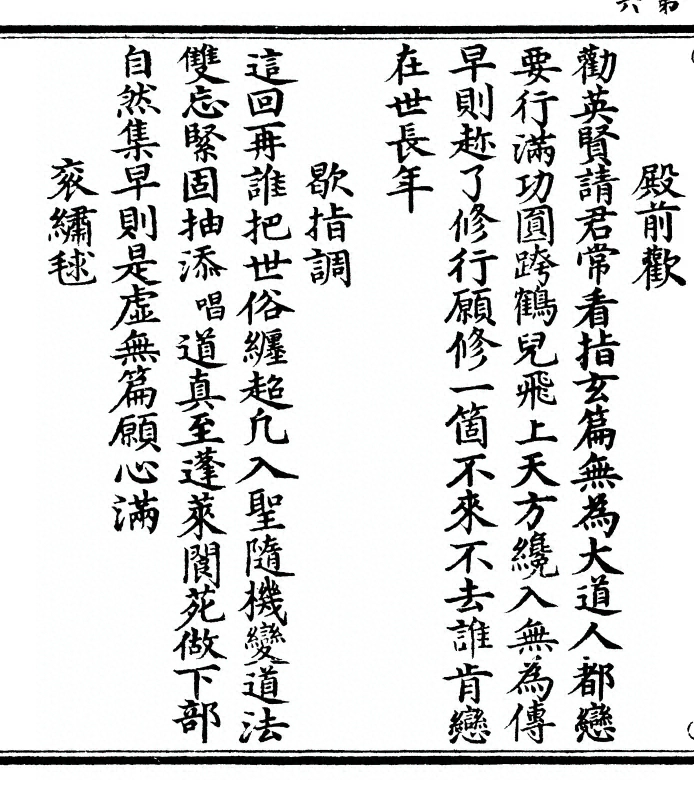 第六
殿前歡
勸英賢請君常看指玄篇無為大道人都戀
要行滿功圓跨鶴兒飛上天方纔入無為傳
早則趂了修行願修一箇不來不去誰肯戀
在世長年
歇指調
這回再誰把世俗纏超凢入聖隨機變道法
雙忘緊固抽添唱道真至蓬萊閬苑做下部
自然集早則是虛無篇願心滿
衮繡毬